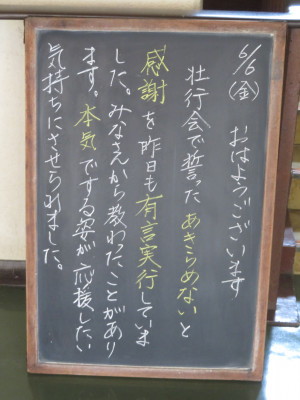 6/6(金) おはようございます
壮行会で誓った あきらめない と
感謝 を 昨日も 有言実行 していま
した。みなさんから教わったことがあり
ます。本気でする姿が応援したい
気持ちにさせられました。